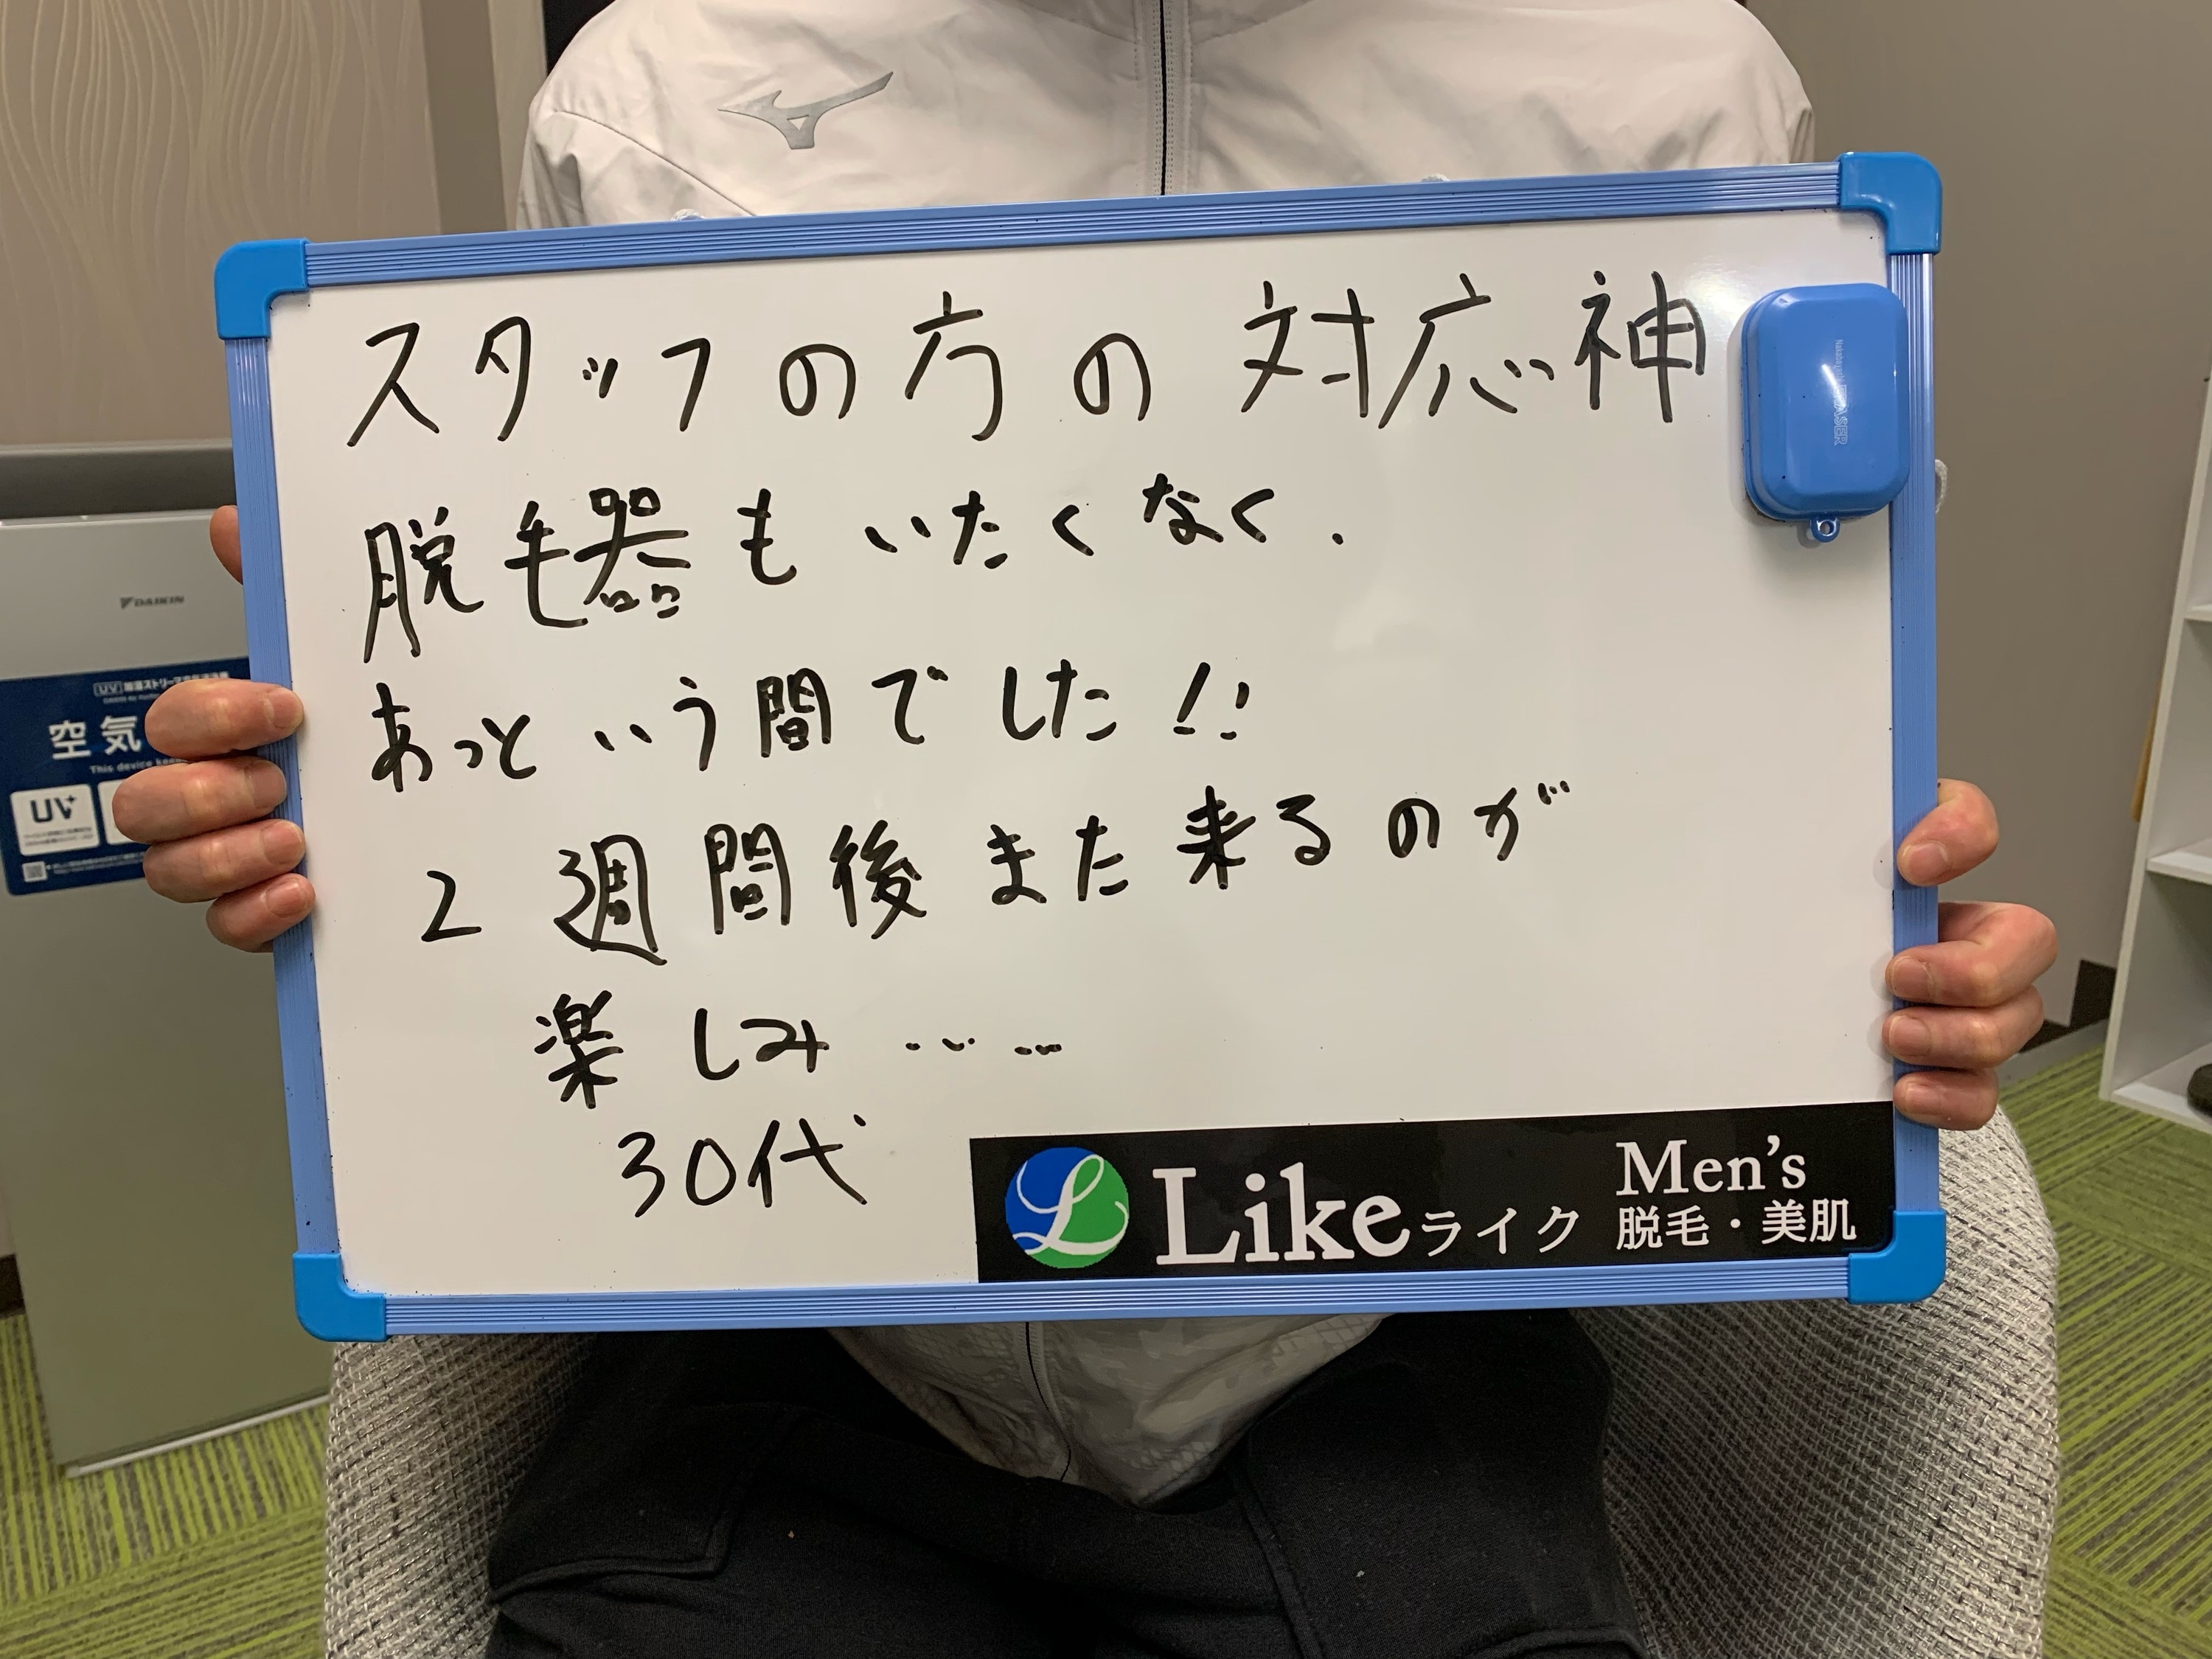 スタッフの方の対応神
脱毛器もいたくなく.
あっという間でした!!
2週間後また来るのが
楽しみ……
30代
Like ライク
Men's
脱毛・美肌
DAIKIN
空気
This device
UV